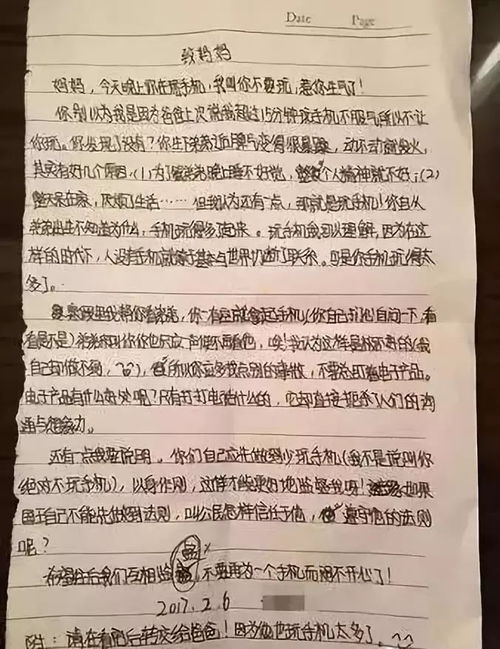 Date Page
致妈妈
妈妈,今天晚上你在玩手机,我叫你不要玩,惹你生气了!
你别以为我是因为爸爸上次说我超过15分钟玩手机不服气所以不让
你玩。你发现了没有?你生了弟弟之后脾气变得很暴躁,动不动就发火,
其实有好几个原因,(1)为了管弟弟晚上睡不好觉,整个人精神就不好;(2)
整天呆在家,厌烦了生活……但我认为还有一点,那就是玩手机!你自从
弟弟出生不知道为什么,手机玩得多了起来。玩手机我可以理解,因为在这
样的时代下,人没有手机就等于基本与世界切断了联系。可是你手机玩得太
多了。
寒假里我帮你看弟弟,你一有空就拿起手机(你自己扪心自问一下,看
看是不是)弟弟叫你你也只应一声便不再看他,唉!我认为这样是极不好的(我
自己却做不到,),所以你应多找点别的事做,不要总盯着电子产品。
电子产品有什么好处呢?只有打打电话什么的,它却直接扼杀了人们的沟
通与想象力。
还有一点我要说明。你们自己应先做到少玩手机(我不是说叫你
绝对不玩手机),以身作则,这样才能更好地监督我呀!如果
国王自己不能先做到法则,叫公民怎样信任于他,遵守他的法则
呢?
希望往后我们互相监督,不要再为一个手机而闹不开心了!
2017.2.6
附:请在看完后转交给爸爸!因为他也玩手机太多了。^^